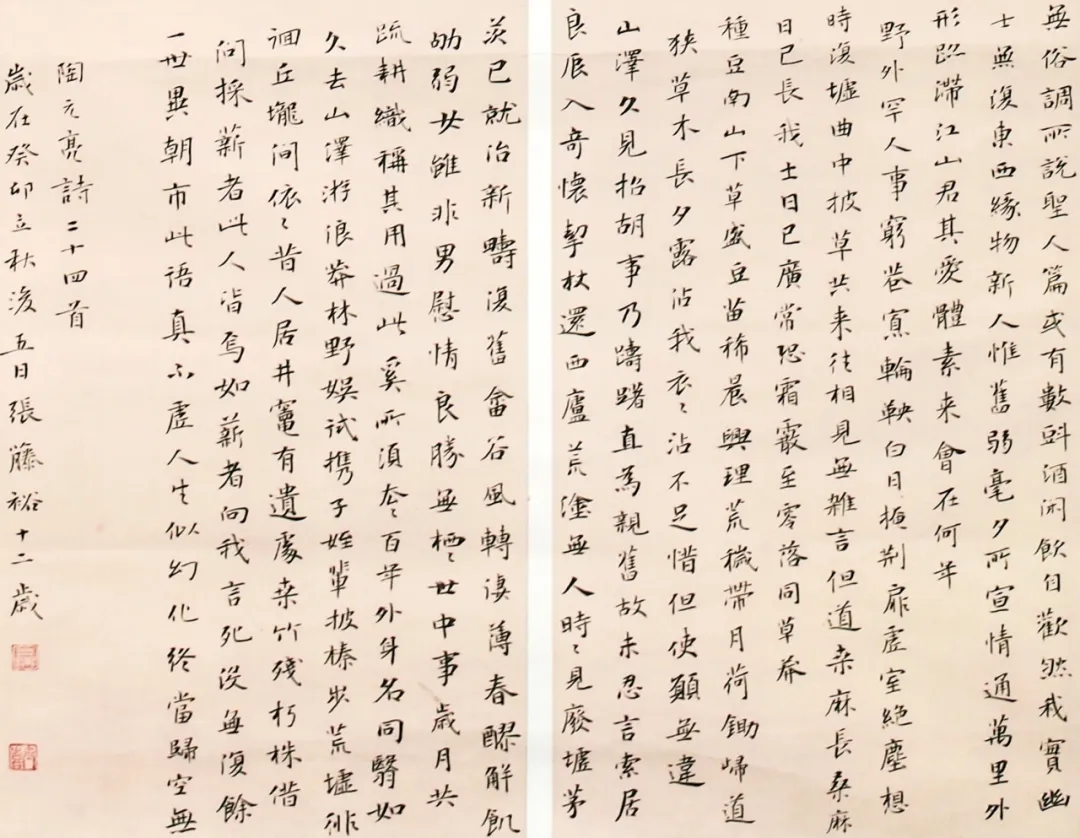 無俗調所說聖人篇或有數斟酒閑飲自歡然我實幽
士無復東西緣物新人惟舊弱毫夕所宣情通萬里外
形跡滯江山君其愛體素来會在何年
野外罕人事窮巷寡輪鞅白日掩荆扉虛室絕塵想
時復墟曲中披草共来往相見無雜言但道桑麻長桑麻
日已長我土日已廣常恐霜霰至零落同草莽
種豆南山下草盛豆苗稀晨興理荒穢帶月荷鋤歸道
狹草木長夕露沾我衣〻沾不足惜但使願無違
山澤久見招胡事乃躊躇直為親舊故未忍言索居
良辰入奇懷挈杖還西廬荒塗無人時〻見廢墟茅
茨已就治新疇復舊畬谷風轉淒薄春醪解飢
劬弱女雖非男慰情良勝無栖〻世中事歲月共
疏耕織稱其用過此奚所須去〻百年外身名同翳如
久去山澤游浪莽林野娛試携子姪輩披榛步荒墟徘
徊丘壠間依〻昔人居井竈有遺處桑竹殘朽株借
問採薪者此人皆焉如薪者向我言死沒無復餘
一世異朝市此語真不虛人生似幻化終當歸空無
陶元亮詩二十四首
歲在癸卯立秋後五日張藤裕十二歲